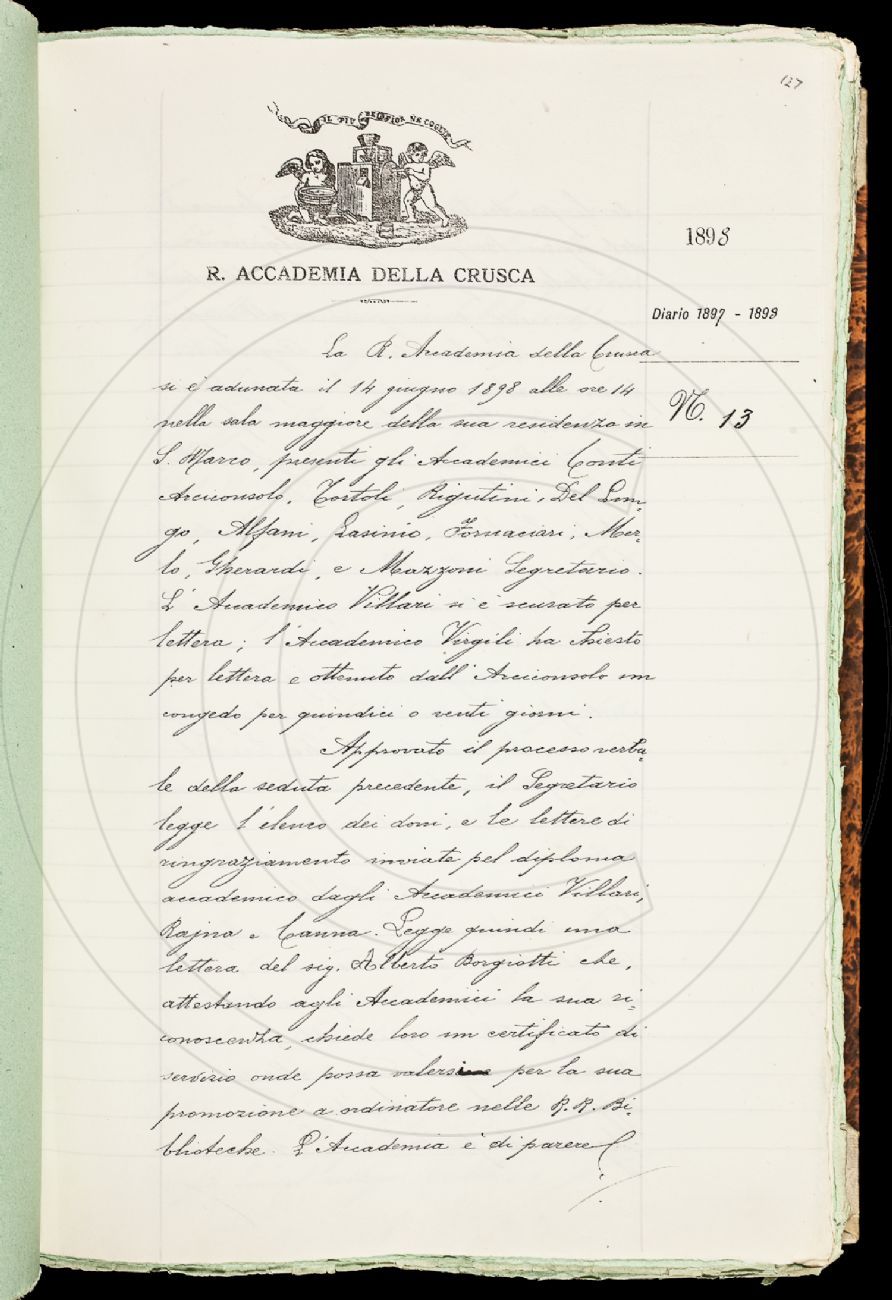 127
IL PIÙ BEL FIOR NE COGLIE
1898
R. ACCADEMIA DELLA CRUSCA
Diario 1897 - 1899
N. 13
La R. Accademia della Crusca
si è adunata il 14 giugno 1898 alle ore 14
nella sala maggiore della sua residenza in
S. Marco, presenti gli Accademici Conti
Arciconsolo, Tortoli, Rigutini, Del Lun-
go, Alfani, Lasinio, Fornaciari, Mer-
lo, Gherardi, e Mazzoni Segretario.
L'Accademico Villari si è scusato per
lettera; l'Accademico Virgili ha chiesto
per lettera e ottenuto dall'Arciconsolo un
congedo per quindici o venti giorni.
Approvato il processo verba-
le della seduta precedente, il Segretario
legge l'elenco dei doni, e le lettere di
ringraziamento inviate pel diploma
accademico dagli Accademici Villari,
Rajna e Canna. Legge quindi una
lettera del sig. Alberto Borgiotti che,
attestando agli Accademici la sua ri-
conoscenza, chiede loro un certificato di
servizio onde possa valersi per la sua
promozione a ordinatore nelle R. R. Bi-
blioteche. L'Accademia è di parere